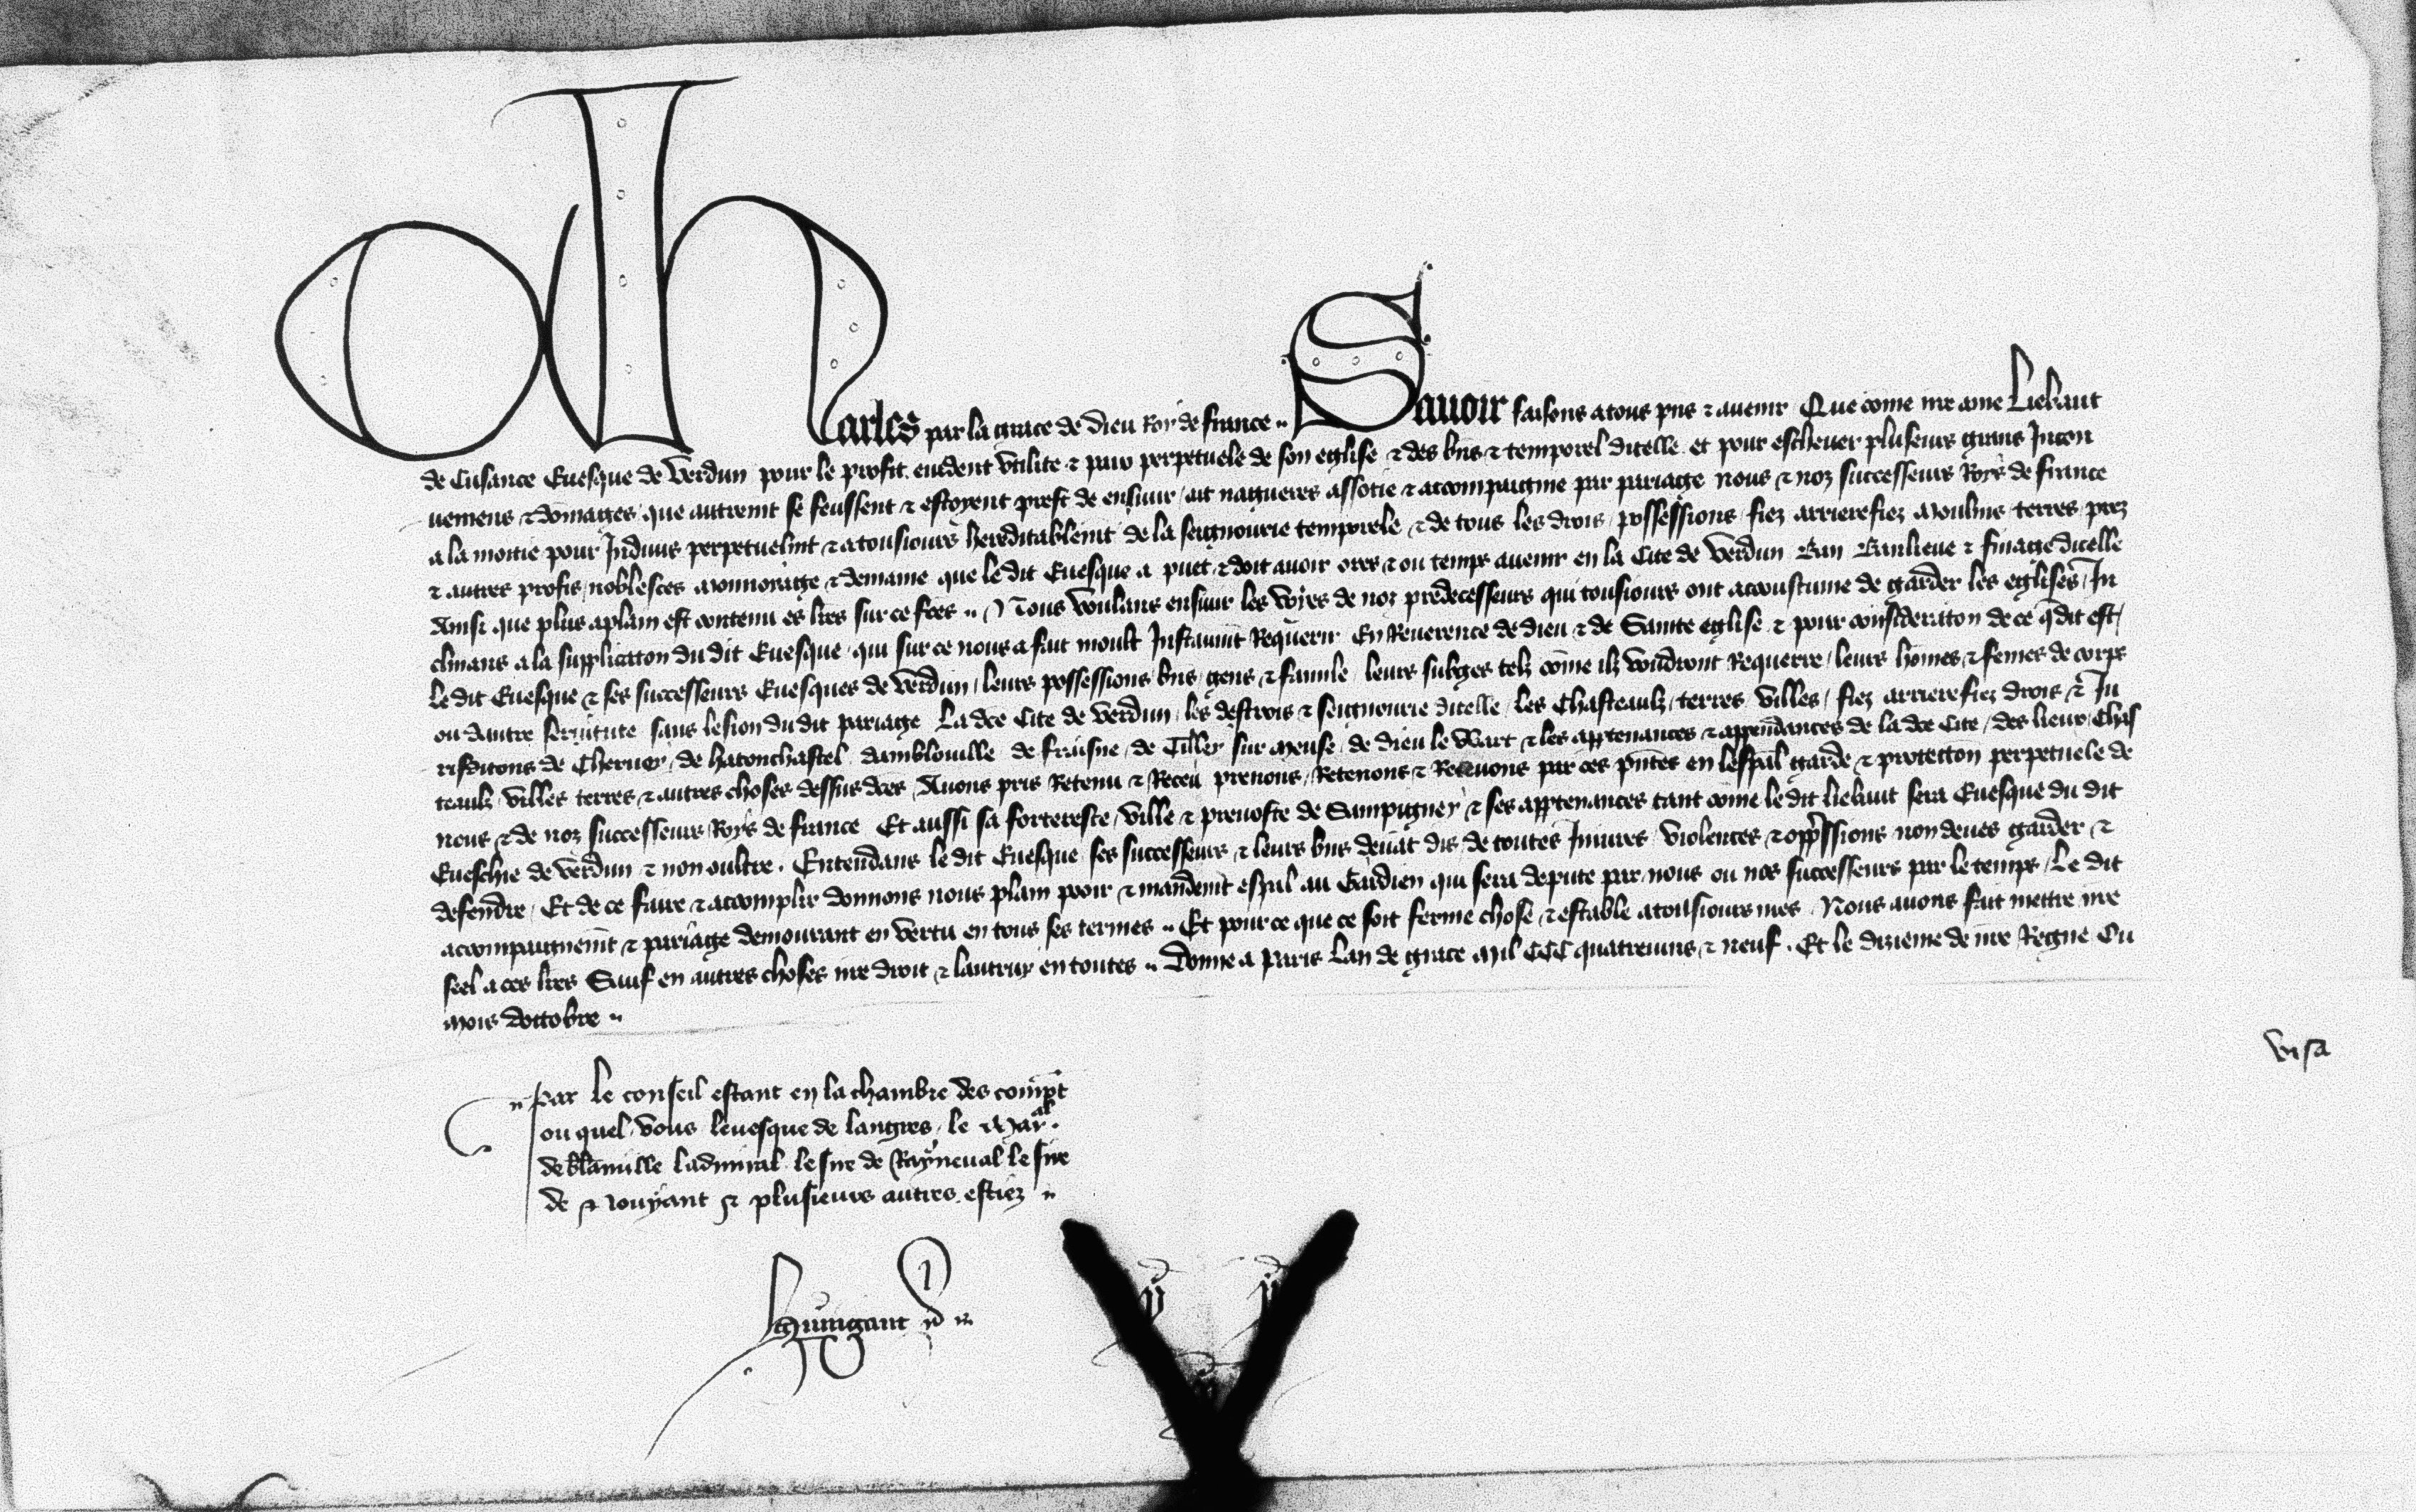 Charles par la grace de dieu Roy de france .. Savoir faisons a tous pns & avenir Que come nre ame Liebaut
de Cusance Evesque de Verdun pour le profit evident utilite & paix perpetuele de son eglise & des bns & temporel dicelle et pour eschever pluseurs grans Incon
veniens & domages que autremt se feussent & estoyent prest de ensuir ait nagueres associe & accompaignie par pariage nous & noz successeurs Roys de france
a la moitie pour Indivis perpetuelmt & a tousiours hereditablemt de la seignourie temporele & de tous les drois possessions fiez arrierefiez moulins terres prez
& autres profis noblesces monnoiage & demaine que le dit Evesque a puet & doit avoir ores & ou temps avenir en la Cite de Verdun Ban Banlieue & finage dicelle
Ainsi que plus aplain est contenu es lres sur ce fces .. Nous voulans ensuir les voyes de noz predecesseurs qui tousiours ont acoustume de garder les eglises In
clinans a la supplicaton du dit Evesque qui sur ce nous a fait moult Instaumt Requerir En Reverence de dieu & de Sainte eglise & pour consideraton de ce q dit est
le dit Evesque & ses successeurs Evesques de Verdun leurs possessions bns gens & famile leurs subges telz come ilz voudront Requerre leurs homes & femes de corps
ou dautre servitute sans lesion du dit pariage La dce Cite de Verdun les destrois & seignourie dicelle les Chasteaulz terres villes fiez arrierefiez drois & Iu
risditons de Cherney de hatonchastel damblonville de fraisne de Tiller sur meuse de dieu le Wart & les apptenances & appendances de la dce Cite des lieux Chas
teaulz villes terres & autres choses dessus dces Avons pris Retenu & Receu prenons Retenons & Recevons par ces pntes en lespal garde & protection perpetuele de
nous & de noz successeurs Roys de france Et aussi sa fortereste ville & prevoste de Sampigney & ses apptenances tant come le dit liebaut sera Evesque du dit
Eveschie de verdun & non oultre . Entendans le dit Evesque ses successeurs & leurs bns devat dis de toutes Iniures violences & oppssions non deues garder &
defendre Et de ce faire & acomplir donnons nous plain pooir & mandemt espal au Gardien qui sera depute par nous ou nos successeurs par le temps Le dit
accompaignemt & pariage demourant en vertu en tous ses termes .. Et pour ce que ce soit ferme chose & estable a tousiours mes Nous avons fait mettre nre
seel a ces lres Sauf en autres choses nre droit & lautruy en toutes .. Donne a Paris Lan de grace Mil CCC quatrevins & neuf . Et le dizieme de nre Regne Ou
mois doctobre ..
visa
par le conseil estant en la chambre des compt
ou quel vous levesque de langres le Maral
de blainville ladmiral le sire de Rayneval le sire
de Nouyant & plusieurs autres estiez ..